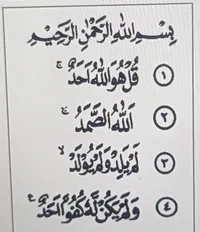 بِسْمِ اللهِ الرَّحْمٰنِ الرَّحِيْمِ
قُلْ هُوَ اللهُ اَحَدٌ ۚ ١
اَللهُ الصَّمَدُ ۚ ٢
لَمْ يَلِدْ وَلَمْ يُوْلَدْ ۙ ٣
وَلَمْ يَكُنْ لَّهٗ كُفُوًا اَحَدٌ ۧ ٤